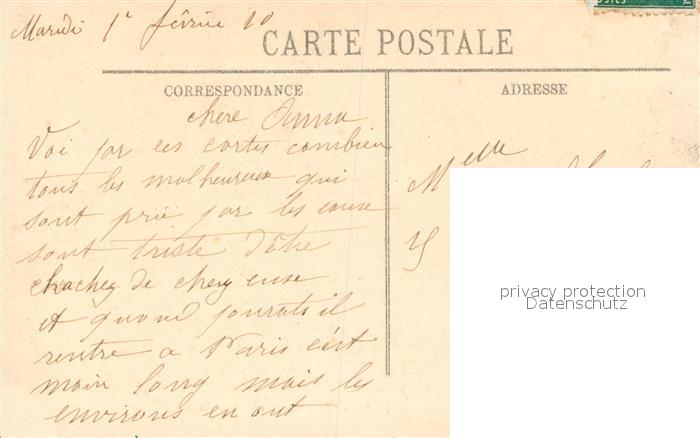 Mardi 1r février 10
CARTE POSTALE
CORRESPONDANCE
ADRESSE
chere Anna
Voi par ces cartes combien
tous les malheureux qui
sont prie par les eaux
sont triste d'être
chachez de chez euse
et quand pourats il
rentre a Paris cést
moin long mais les
environs en ont
Melle
privacy protection
Datenschutz